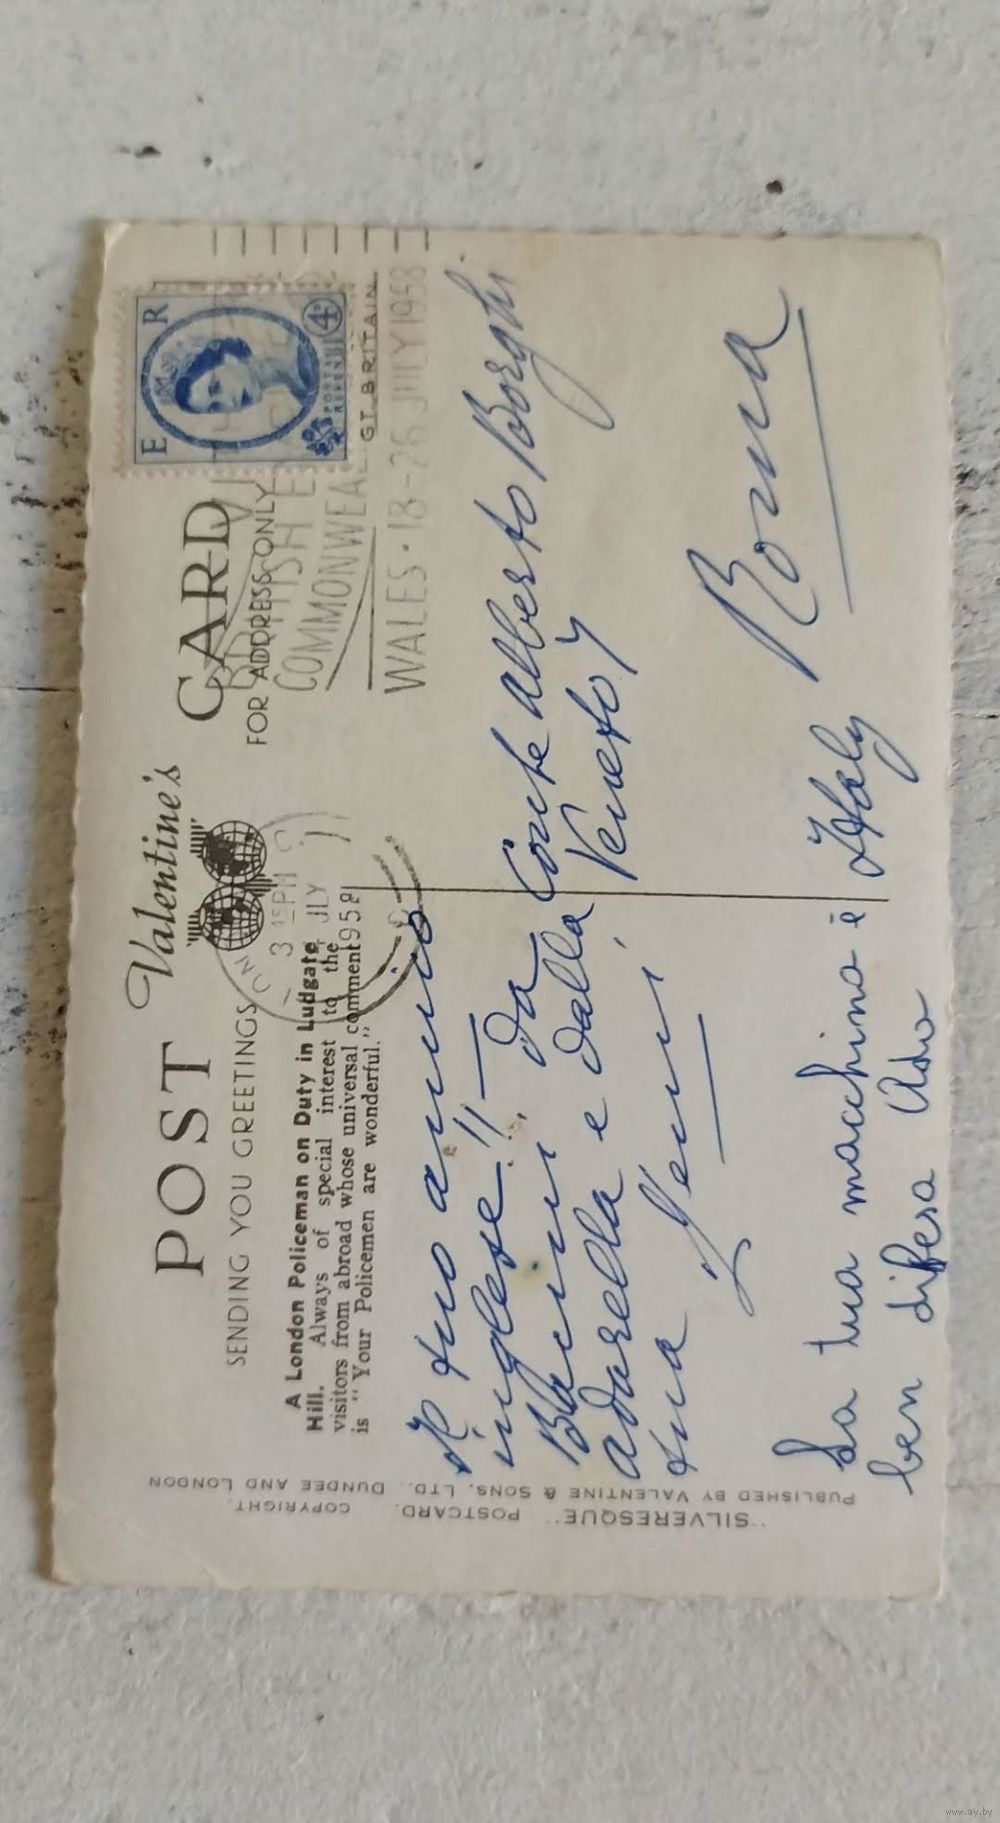 POST Valentine's CARD
SENDING YOU GREETINGS
FOR ADDRESS ONLY
E R
4D
POSTAGE
REVENUE
A London Policeman on Duty in Ludgate
Hill. Always of special interest to the
visitors from abroad whose universal comment
is "Your Policemen are wonderful."
3 45 PM
JLY
1958
BRITISH E
COMMONWEAL
GT. BRITAIN
WALES · 18-26 JULY 1958
Il tuo amico
inglese!! Da
e dalla
tua
La tua macchina è
ben difesa
Conte Alberto Borghi
Veneto 7
Roma
Italy
"SILVERESQUE" POSTCARD. COPYRIGHT.
PUBLISHED BY VALENTINE & SONS, LTD., DUNDEE AND LONDON
www.ay.by